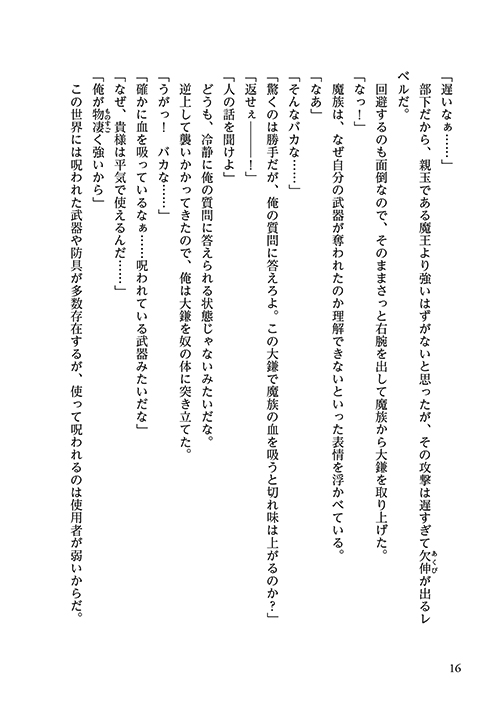 「遅いなぁ……」
部下だから、親玉である魔王より強いはずがないと思ったが、その攻撃は遅すぎて欠伸が出るレ
ベルだ。
回避するのも面倒なので、そのままさっと右腕を出して魔族から大鎌を取り上げた。
「なっ！」
魔族は、なぜ自分の武器が奪われたのか理解できないといった表情を浮かべている。
「なあ」
「そんなバカな……」
「驚くのは勝手だが、俺の質問に答えろよ。この大鎌で魔族の血を吸うと切れ味は上がるのか？」
「返せぇ———！」
「人の話を聞けよ」
どうも、冷静に俺の質問に答えられる状態じゃないみたいだな。
逆上して襲いかかってきたので、俺は大鎌を奴の体に突き立てた。
「うがっ！　バカな……」
「確かに血を吸っているなぁ……呪われている武器みたいだな」
「なぜ、貴様は平気で使えるんだ……」
「俺が物凄く強いから」
この世界には呪われた武器や防具が多数存在するが、使って呪われるのは使用者が弱いからだ。
あくび
ものすご
16